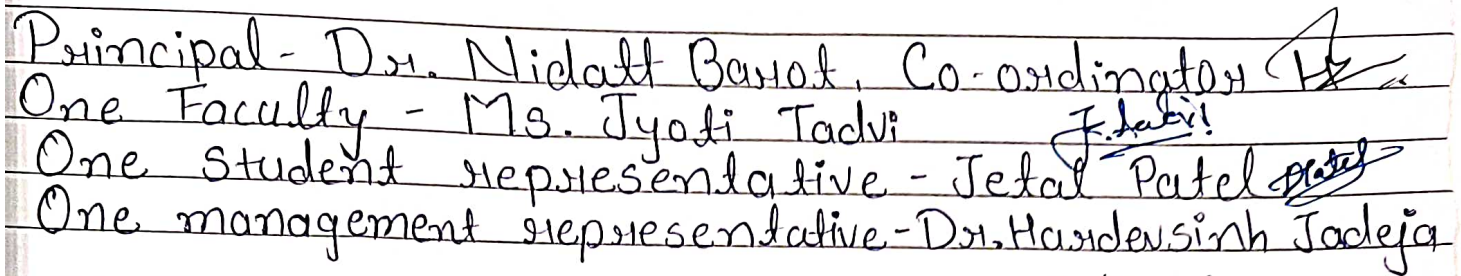 Principal - Dr. Nidatt Barot, Co-ordingtor
One Faculty - Ms. Jyoti Tadvi
One Student representative - Jetal Patel
One management representative - Dr. Hardevsinh Jadeja